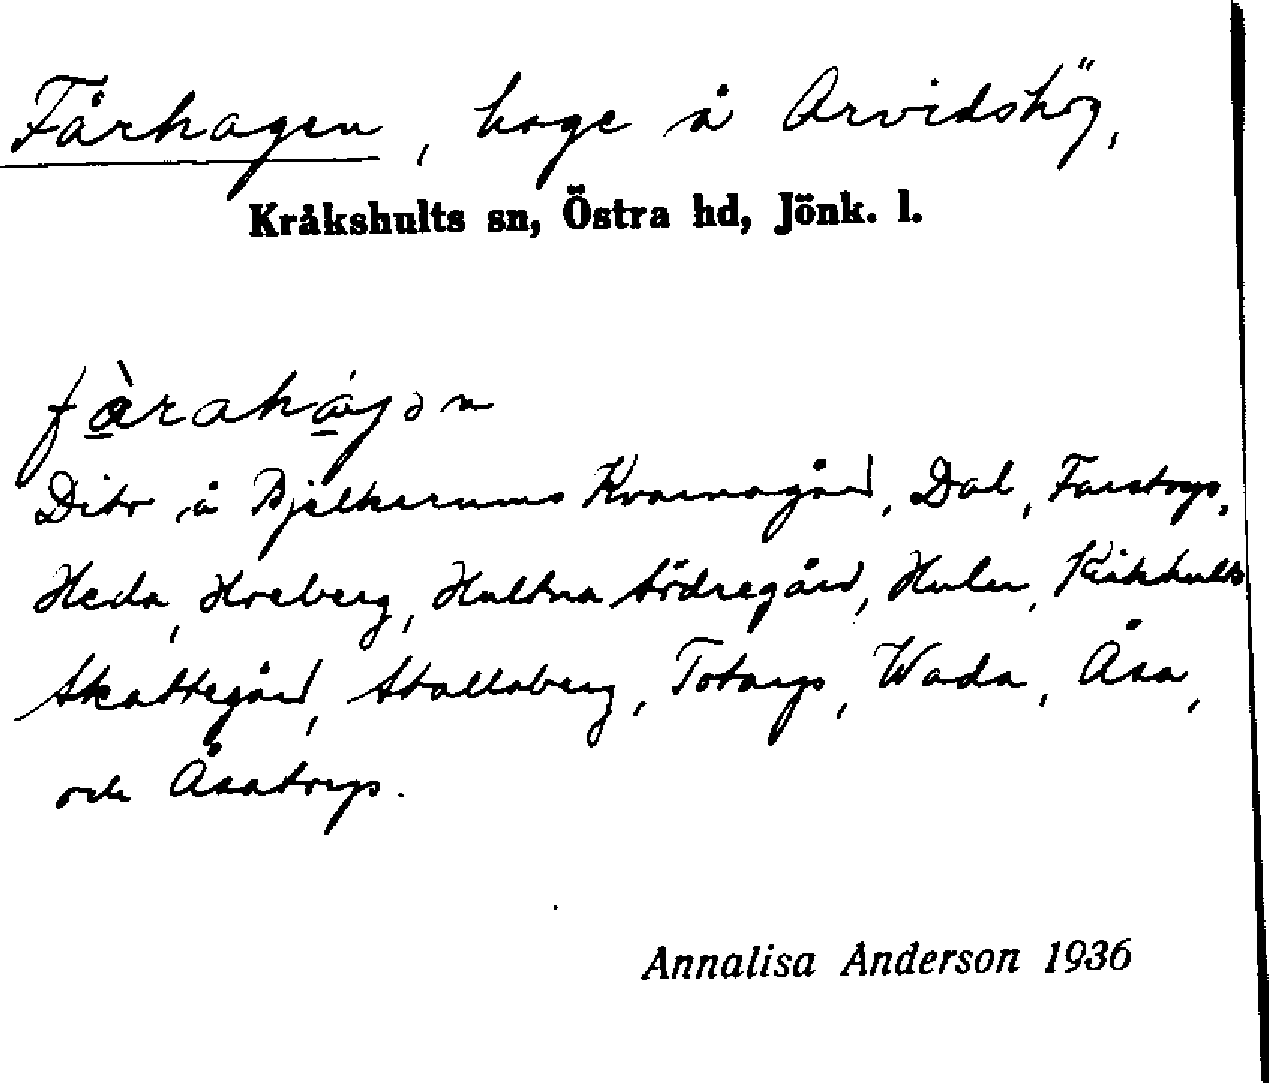 Fårhagen, hage å Arvidshög,
Kråkshults sn, Östra hd, Jönk. l.
fàrahágən
Dito å Bjälkerums Kvarnagård, Dal, Farstorp,
Heda, Hoeberg, Hultna Södregård, Hulu, Kråkhults
Skattegård, Stallsberg, Totarp, Wada, Åsa,
och Åsatorp.
Annalisa Anderson 1936